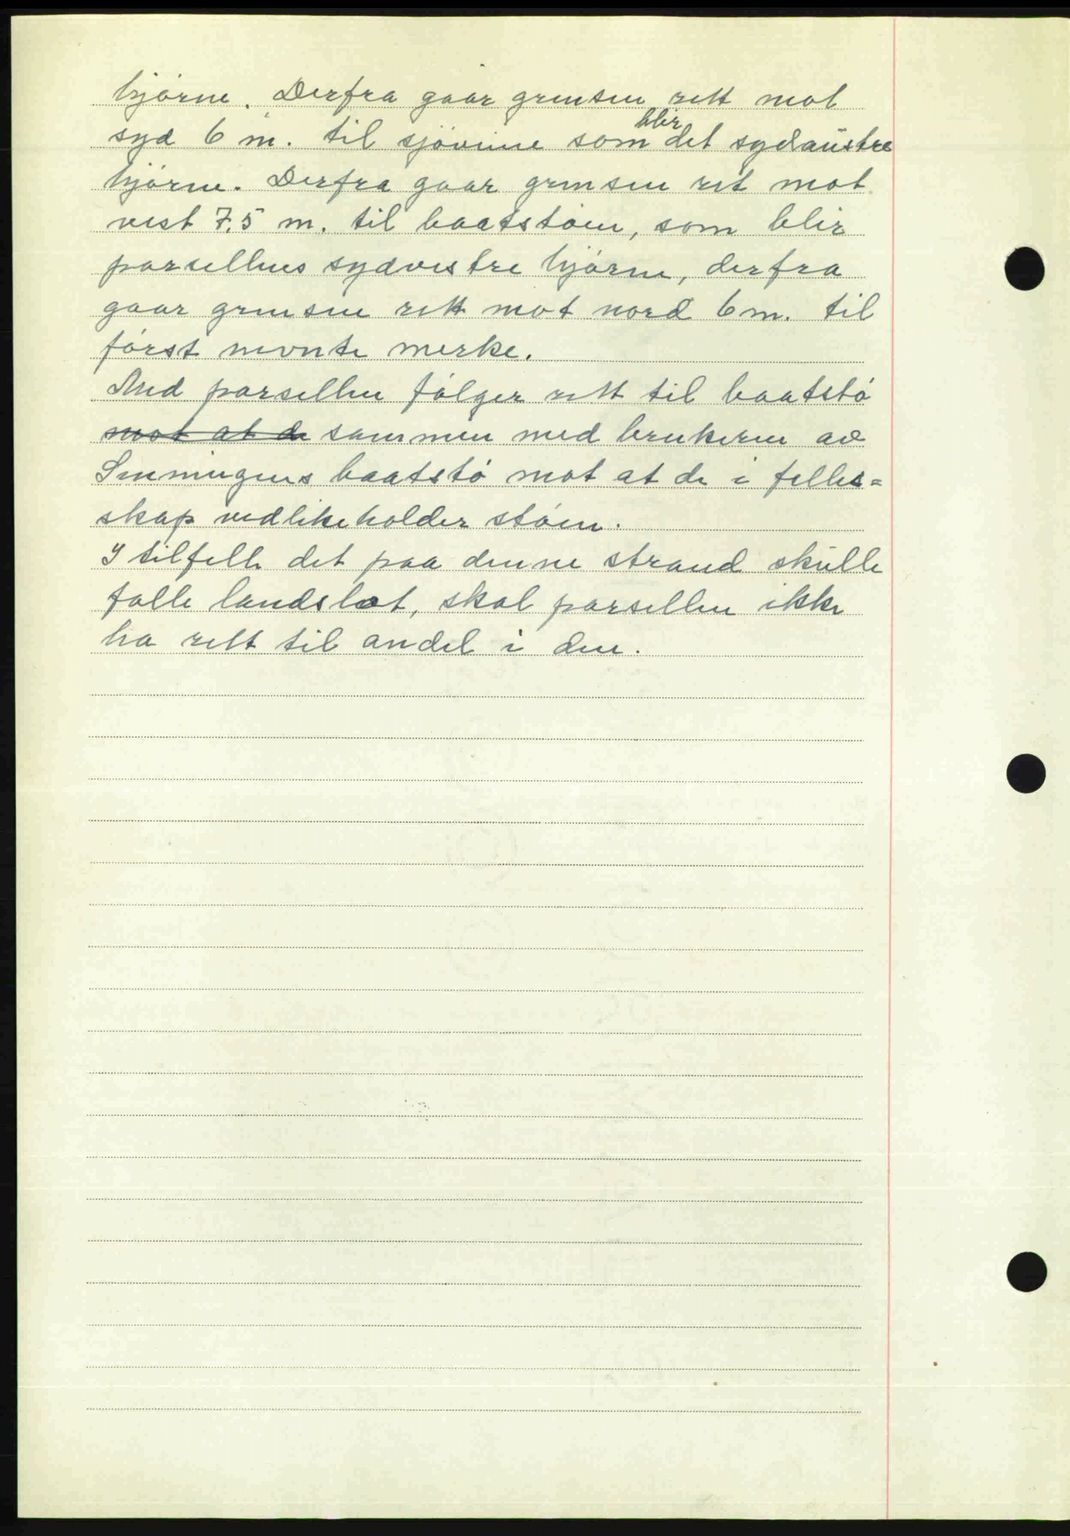 hjörne. Derfra gaar grensen rett mot
syd 6 m. til sjövene som blir det sydaustre
hjörne. Derfra gaar grensen ret mot
vest 7,5 m. til baatstöen, som blir
parsellens sydvestre hjörne, derfra
gaar grensen rett mot nord 6 m. til
först nevnte merke.
Med parsellen fölger rett til baatstö
mot at de sammen med brukeren av
baatstö mot at de i felles=
skap vedlikeholder stöen.
I tilfelle det paa denne strand skulle
falle landslot, skal parsellen ikke
ha rett til andel i den.